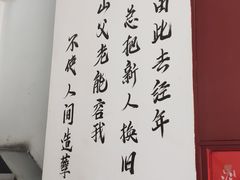 由此去经年
总把新人换旧
山父老能容我
不使人间造孽